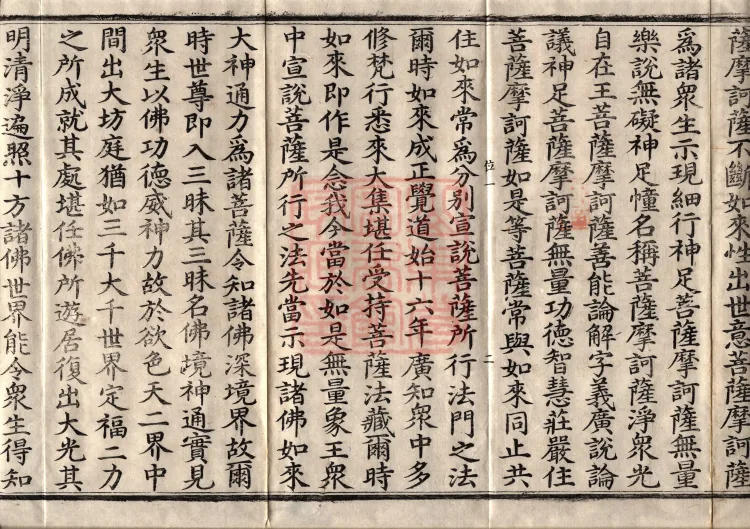 薩摩訶薩不斷如來性出世意菩薩摩訶薩
爲諸衆生示現細行神足菩薩摩訶薩無量
樂說無礙神足幢名稱菩薩摩訶薩淨衆光
自在王菩薩摩訶薩善能論解字義廣說論
議神足菩薩摩訶薩無量功德智慧莊嚴住
菩薩摩訶薩如是等菩薩常與如來同止共
位一 二
住如來常爲分別宣說菩薩所行法門之法
爾時如來成正覺道始十六年廣知衆中多
修梵行悉來大集堪任受持菩薩法藏爾時
如來即作是念我今當於如是無量象王衆
中宣說菩薩所行之法先當示現諸佛如來
大神通力爲諸菩薩令知諸佛深境界故爾
時世尊即入三昧其三昧名佛境神通實見
衆生以佛功德威神力故於欲色天二界中
間出大坊庭猶如三千大千世界定福二力
之所成就其處堪任佛所遊居復出大光其
明清淨遍照十方諸佛世界能令衆生得知